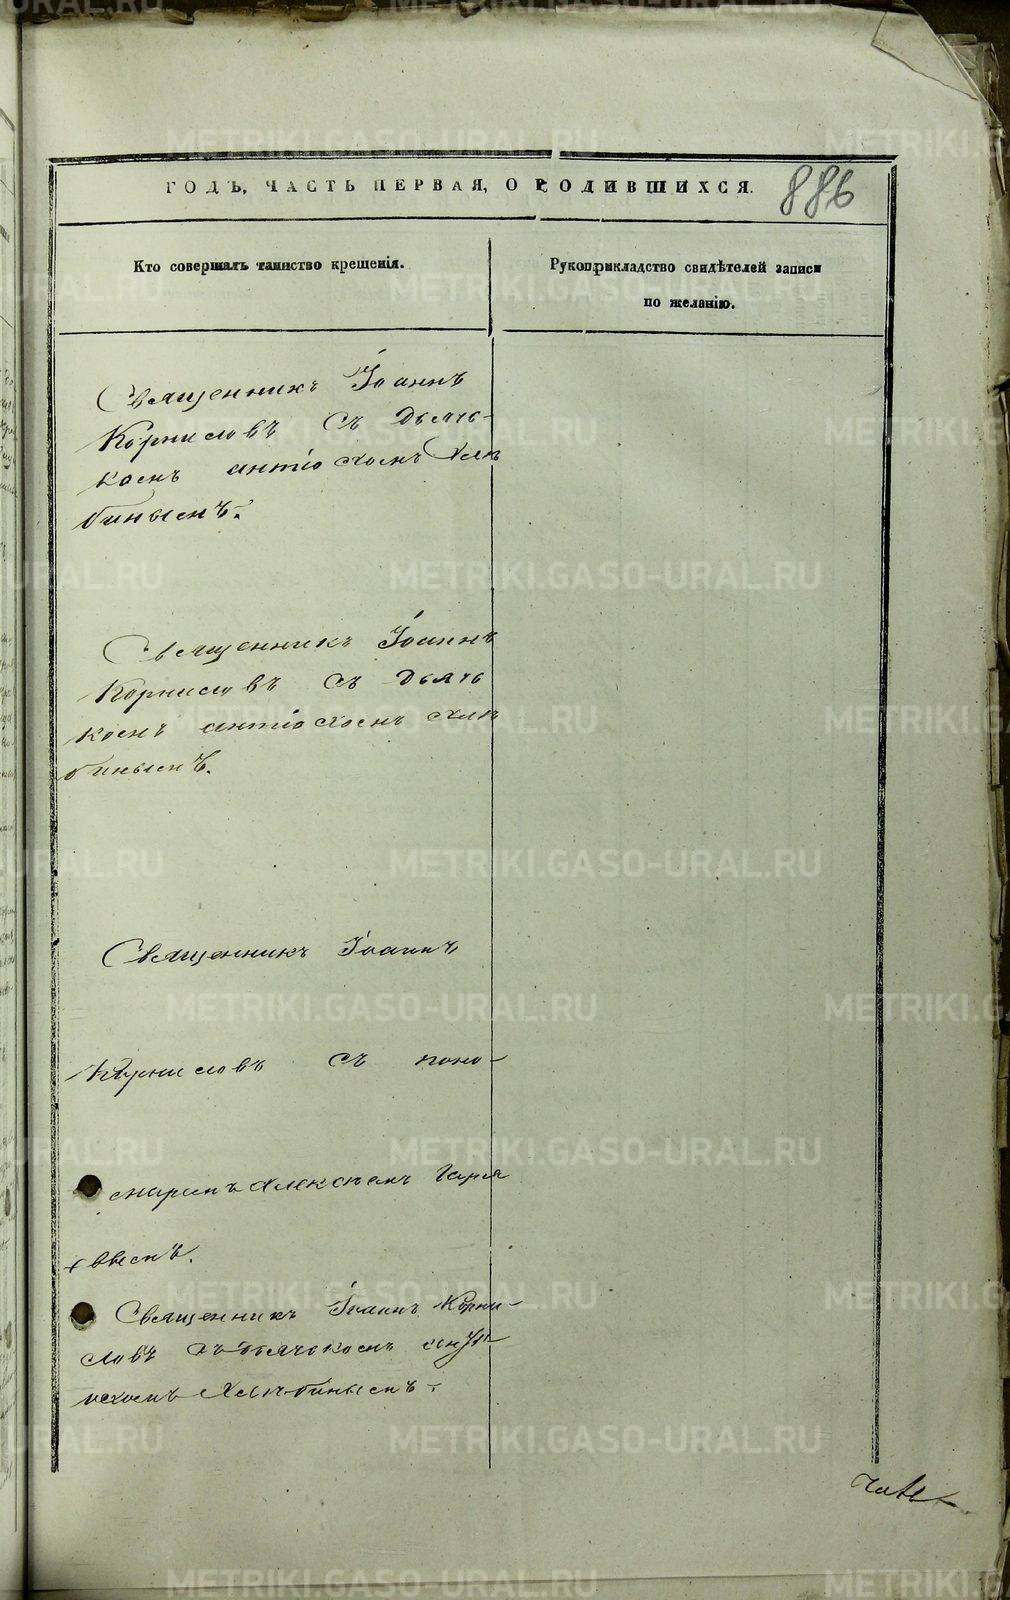 ГОДЪ, ЧАСТЬ ПЕРВАЯ, О РОДИВШИХСЯ.
886
Кто совершалъ таинство крещенія.
Рукоприкладство свидѣтелей записи
по желанію.
Священникъ Іоаннъ
Корнисловъ съ Дьяч-
комъ Антіохомъ Хлѣ
бинымъ.
Священникъ Іоаннъ
Корнисловъ съ Дьяч
комъ Антіохомъ Хлѣ
бинымъ.
Священникъ Іоаннъ
Корнисловъ съ поно-
маремъ Алексѣемъ
Священникъ Іоаннъ Корни-
словъ съ Дьячкомъ Анті
охомъ Хлѣбинымъ.
METRIKI.GASO-URAL.RU